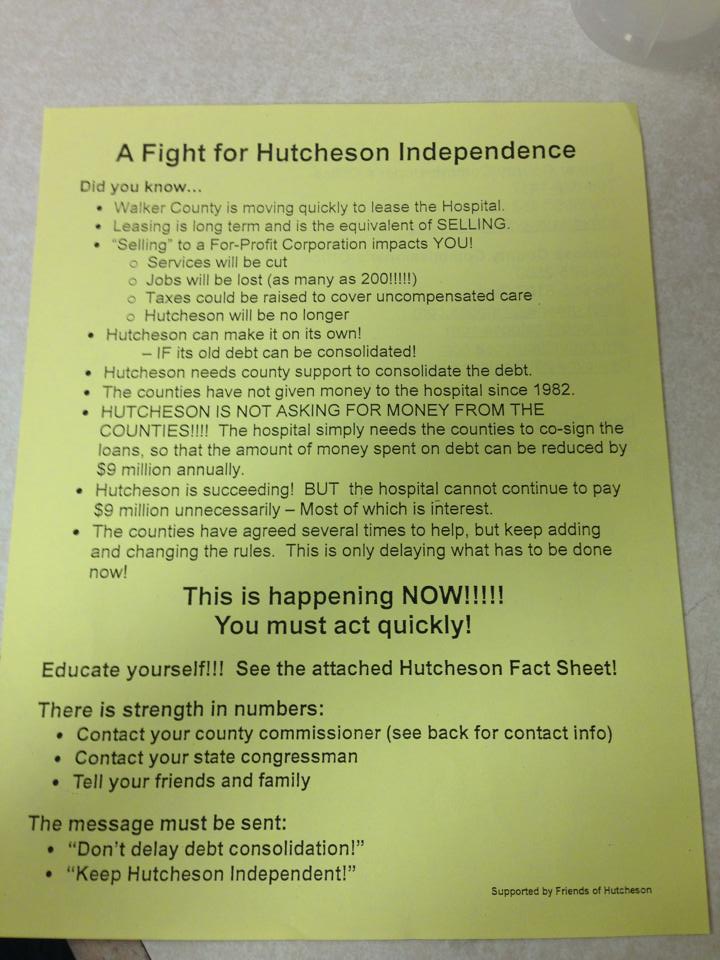 A Fight for Hutcheson Independence
Did you know...
• Walker County is moving quickly to lease the Hospital.
• Leasing is long term and is the equivalent of SELLING.
• "Selling" to a For-Profit Corporation impacts YOU!
o Services will be cut
o Jobs will be lost (as many as 200!!!!!)
o Taxes could be raised to cover uncompensated care
o Hutcheson will be no longer
• Hutcheson can make it on its own!
– IF its old debt can be consolidated!
• Hutcheson needs county support to consolidate the debt.
• The counties have not given money to the hospital since 1982.
• HUTCHESON IS NOT ASKING FOR MONEY FROM THE
COUNTIES!!!! The hospital simply needs the counties to co-sign the
loans, so that the amount of money spent on debt can be reduced by
$9 million annually.
• Hutcheson is succeeding! BUT the hospital cannot continue to pay
$9 million unnecessarily – Most of which is interest.
• The counties have agreed several times to help, but keep adding
and changing the rules. This is only delaying what has to be done
now!
This is happening NOW!!!!!
You must act quickly!
Educate yourself!!! See the attached Hutcheson Fact Sheet!
There is strength in numbers:
• Contact your county commissioner (see back for contact info)
• Contact your state congressman
• Tell your friends and family
The message must be sent:
• "Don't delay debt consolidation!"
• "Keep Hutcheson Independent!"
Supported by Friends of Hutcheson